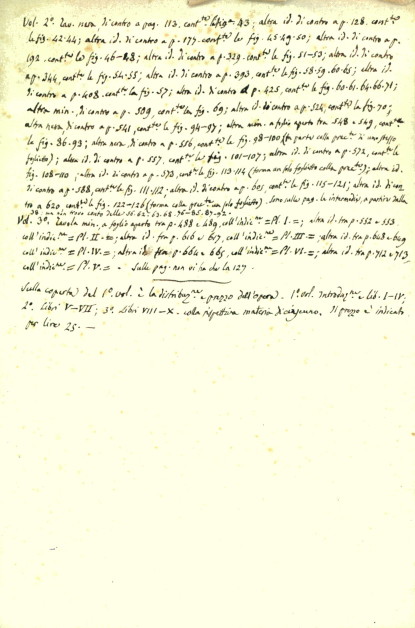 Vol. 2º. Tav. nera di contro a pag. 113, cont.te le fig.e 43; altra id. di contro a p. 128, cont.te
le fig. 42-44; altra id. di contro a p. 177, cont.te le fig. 45-49-50; altra id. di contro a p.
192, cont.te le fig. 46-48; altra id. di contro a p. 329, cont.te le fig. 51-53; altra id. di contro
a p. 344, cont.te le fig. 54-55; altra id. di contro a p. 393, cont.te le fig. 58-59-60-65; altra id.
di contro a p. 408, cont.te le fig. 57; altra id. di contro a p. 425, cont.te le fig. 60-61-64-66-71;
altra min. di contro a p. 509, cont.te la fig. 69; altra id. di contro a p. 524, cont.te la fig. 70;
altra nera di contro a p. 541, cont.te le fig. 94-97; altra min. a foglio aperto tra 548 e 549, cont.te
le fig. 86-93; altra nera di contro a p. 556, cont.te le fig. 98-100 (fa parte colla prec.te di uno stesso
foglietto); altra id. di contro a p. 557, cont.te le fig. 101-107; altra id. di contro a p. 572, cont.te le
fig. 108-110; altra id. di contro a p. 573, cont.te le fig. 113-114 (forma un sol foglietto colla prec.te); altra id.
di contro a p. 588, cont.te le fig. 111-112; altra id. di contro a p. 605, cont.te le fig. 115-121; altra id. di con
tro a 620, cont.te le fig. 122-126 (forma colla prec.te un solo foglietto). Sono sulle pag. le intermedie, a partire dalla
38, ma non vi
Vol. 3º. Tavola min. a foglio aperto tra p. 488 e 489, coll'indic.ne = Pl. I. =; altra id. tra p. 552 e 553
coll'indic.ne = Pl. II. =; altra id. tra p. 616 e 617, coll'indic.ne = Pl. III. =; altra id. tra p. 648 e 649
coll'indic.ne = Pl. IV. =; altra id. tra p. 664 e 665, coll'indic.ne = Pl. VI. =; altra id. tra p. 712 e 713
coll'indic.ne = Pl. V. = - Sulle pag. non vi ha che la 127.
Sulla coperta del 1º. vol. è la distribuz.ne e prezzo dell'opera. 1º. vol. Introduz.ne e lib. I-IV.
2º. Libri V-VII; 3º. Libri VIII-X. colla rispettiva materia di ciascuno. Il prezzo è indicato
per lire 25. —